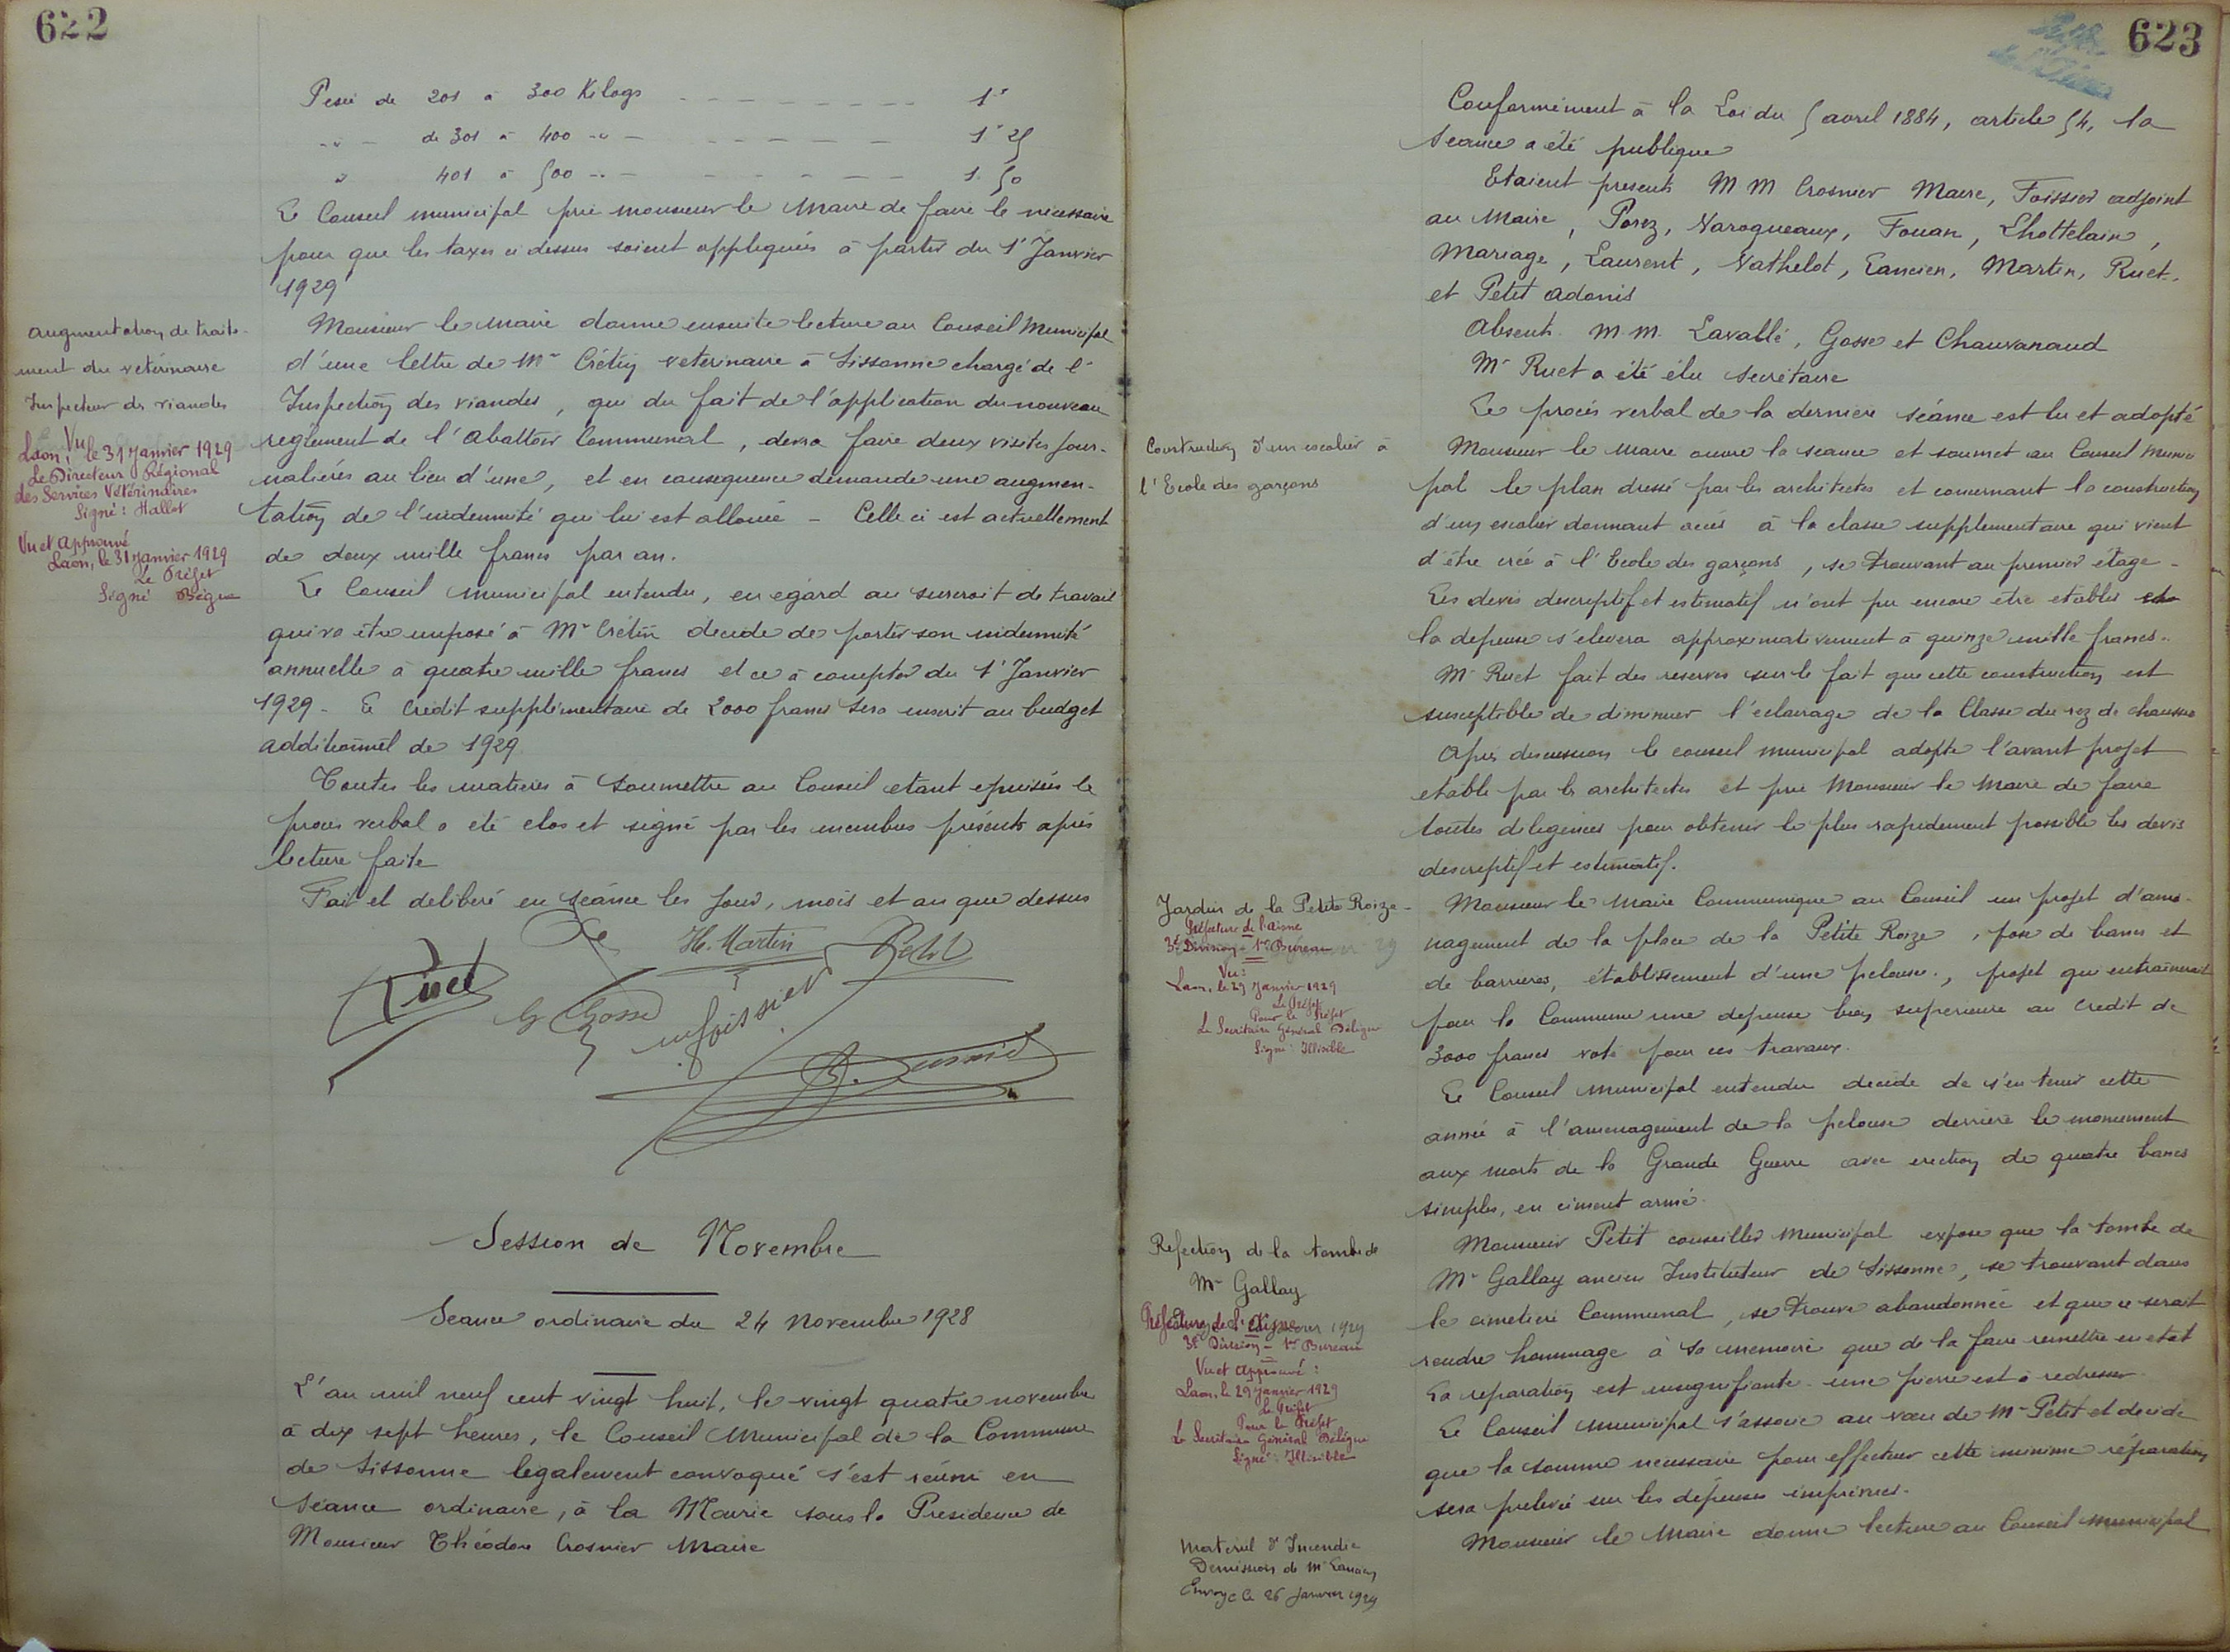 622
Pesée de 201 à 300 Kilogs - - - - - - - - 1f
-"- de 301 à 400 -"- - - - - - 1f 25
" 401 à 500 -"- - - - - - - 1. 50
Le Conseil municipal prie monsieur le Maire de faire le nécessaire
pour que les taxes ci dessus soient appliquées à partir du 1r Janvier
1929
augmentation de traite-
ment du vétérinaire
Inspecteur des viandes
Vu
Laon, le 31 Janvier 1929
Le Directeur Régional
des Services Vétérinaires
Signé : Hallot
Vu et Approuvé
Laon, le 31 Janvier 1929
Le Préfet
Signé
Monsieur le Maire donne ensuite lecture au Conseil Municipal
d'une lettre de Mr Crétin vétérinaire à Sissonne chargé de l'
Inspection des viandes, qui du fait de l'application du nouveau
reglement de l'Abattoir Communal, devra faire deux visites jour-
nalières au lieu d'une, et en consequence demande une augmen-
tation de l'indemnité qui lui est allouée - Celle ci est actuellement
de deux mille francs par an.
Le Conseil Municipal entendu, eu egard au surcroit de travail
qui va être imposé à Mr Crétin decide de porter son indemnité
annuelle à quatre mille francs et ce à compter du 1r Janvier
1929 - Le Crédit supplémentaire de 2000 francs sera inscrit au budget
additionnel de 1929
Toutes les matieres à soumettre au Conseil etant epuisées le
proces verbal a été clos et signé par les membres présents après
lecture faite
Fait et délibéré en séance les jour, mois et an que dessus
H. Martin
Petit
Ruet
G Gosse
Foissier
Session de Novembre
Seance ordinaire du 24 Novembre 1928
L'an mil neuf cent vingt huit, le vingt quatre novembre
à dix sept heures, le Conseil Municipal de la Commune
de Sissonne legalement convoqué s'est réuni en
Séance ordinaire, à la Mairie sous la Presidence de
Monsieur Théodore Crosnier Maire
623
Conformément à la Loi du 5 avril 1884, article 54, la
Séance a été publique
Etaient présents M M Crosnier Maire, Foissier adjoint
au Maire, Porez, Naroqueaux, Fouan, Lhottelain,
Mariage, Laurent, Nathelot, Lancien, Martin, Ruet,
et Petit Adonis
Absents M. M. Lavallé, Gosse et Chauvanaud
Mr Ruet a été élu Secrétaire
Le procès verbal de la dernière séance est lu et adopté
Construction d'un escalier à
l'Ecole des garçons
Monsieur le Maire ouvre la séance et soumet au Conseil Munici
pal le plan dressé par les architectes et concernant la construction
d'un escalier donnant accès à la classe supplementaire qui vient
d'être créé à l'Ecole des garçons, se trouvant au premier étage -
Les devis descriptif et estimatif n'ont pu encore être établis
la depense s'elevera approximativement à quinze mille francs.
Mr Ruet fait des reserves sur le fait que cette construction est
susceptible de diminuer l'éclairage de la Classe du rez de chaussée
Après discussion le conseil municipal adopte l'avant projet
etabli par les architectes et prie Monsieur le Maire de faire
toutes diligences pour obtenir le plus rapidement possible les devis
descriptif et estimatif.
Jardin de la Petite Roize -
Préfecture de l'Aisne
3e Division - 1er Bureau
Vu :
Laon, le 29 Janvier 1929
Le Préfet
Pour le Préfet
Le Secrétaire Général Délégué
Signé : Illisible
Monsieur le Maire Communique au Conseil un projet d'amé-
nagement de la place de la Petite Roize, pose de bancs et
de barrières, établissement d'une pelouse, projet qui entrainerait
pour la Commune une depense bien superieure au credit de
3000 francs voté pour ces travaux.
Le Conseil Municipal entendu decide de s'en tenir cette
année à l'amenagement de la pelouse derrière le monument
aux morts de la Grande Guerre avec erection de quatre bancs
simples, en ciment armé.
Refection de la tombe de
Mr Gallay
Préfecture de l'Aisne
3e Division - 1er Bureau
Vu et Approuvé :
Laon, le 29 Janvier 1929
Le Préfet
Pour le Préfet
Le Secrétaire Général Délégué
Signé : Illisible
Monsieur Petit conseiller Municipal expose que la tombe de
Mr Gallay ancien Instituteur de Sissonne, se trouvant dans
le cimetiere Communal, se trouve abandonnée et que ce serait
rendre hommage à sa memoire que de la faire remettre en etat
La reparation est insignifiante - une pierre est à redresser.
Le Conseil Municipal s'associe au vœu de Mr Petit et decide
que la somme necessaire pour effectuer cette minime réparation
sera prelevée sur les dépenses imprévues.
Materiel d'Incendie
Demission de Mr Lancien
Envoyé le 26 Janvier 1929
Monsieur le Maire donne lecture au Conseil Municipal